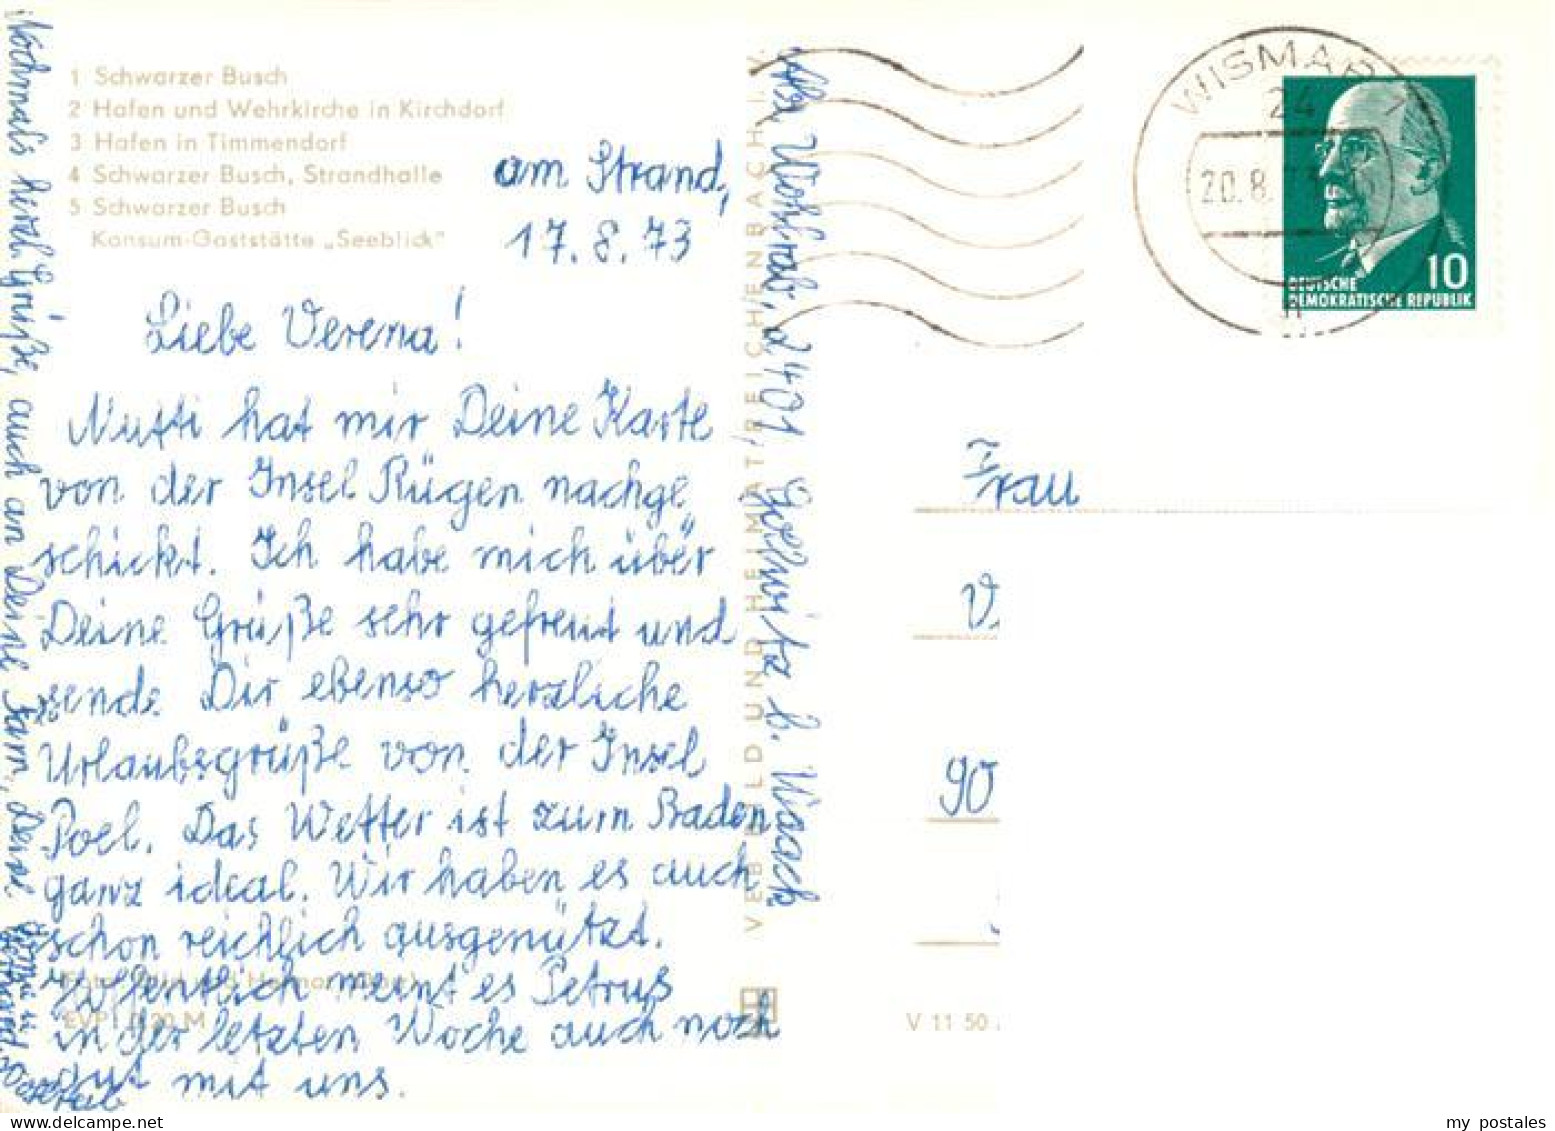 1 Schwarzer Busch
2 Hafen und Wehrkirche in Kirchdorf
3 Hafen in Timmendorf
4 Schwarzer Busch, Strandhalle
5 Schwarzer Busch
Konsum-Gaststätte „Seeblick"
am Strand,
17.8.73
Liebe Verena!
Mutti hat mir Deine Karte
von der Insel Rügen nachge
schickt. Ich habe mich über
Deine Grüße sehr gefreut und
sende Dir ebenso herzliche
Urlaubsgrüße von der Insel
Poel. Das Wetter ist zum Baden
ganz ideal. Wir haben es auch
schon reichlich ausgenützt.
Hoffentlich meint es Petrus
in der letzten Woche auch noch
gut mit uns.
Nochmals herzl. Grüße, auch an Deine Fam., Deine
EVP 0,20 M
VEB BILD UND HEIMAT REICHENBACH I. V.
Wohlrab, 2401
b. Wismar
WISMAR 1
24
20.8.
10
DEUTSCHE
DEMOKRATISCHE REPUBLIK
Frau
V
90
V 11 50
my postales